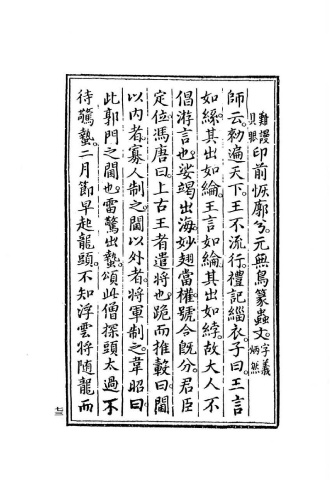 難謾
具眼印前恢廓兮。元無鳥篆蟲文。字義
炳然
師云。勑遍天下。王不流行。禮記緇衣。子曰。王言
如絲。其出如綸。王言如綸。其出如綍。故大人不
倡游言也。娑竭出海妙翅當權號令既分。君臣
定位。馮唐曰。上古王者遣將也。跪而推轂曰。閫
以內者。寡人制之。閫以外者。將軍制之。韋昭曰。
此郭門之閫也。雷驚出蟄。頌此僧探頭太過。不
待驚蟄。二月節早起龍頭。不知浮雲將隨龍而
七三